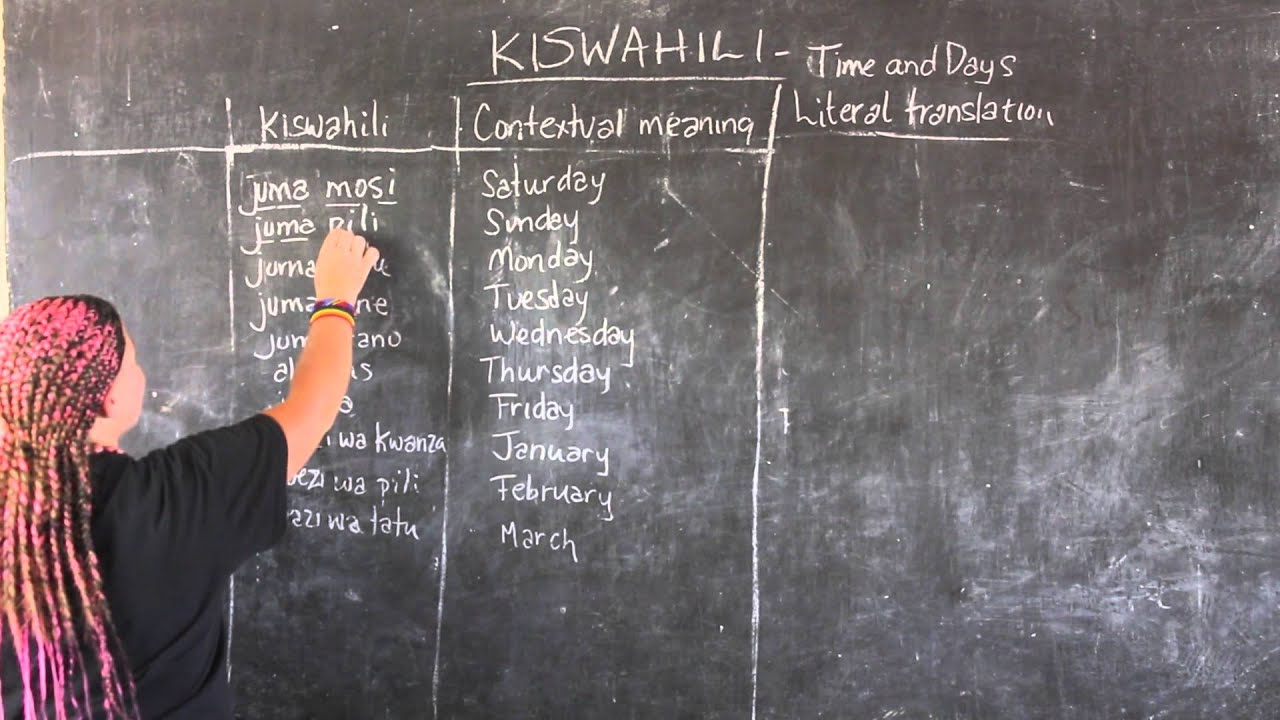 KISWAHILI - Time and Days
Kiswahili Contextual meaning Literal translation
juma mosi Saturday
juma pili Sunday
Monday
Tuesday
Wednesday
Thursday
Friday
wa kwanza January
wa pili February
wa tatu March